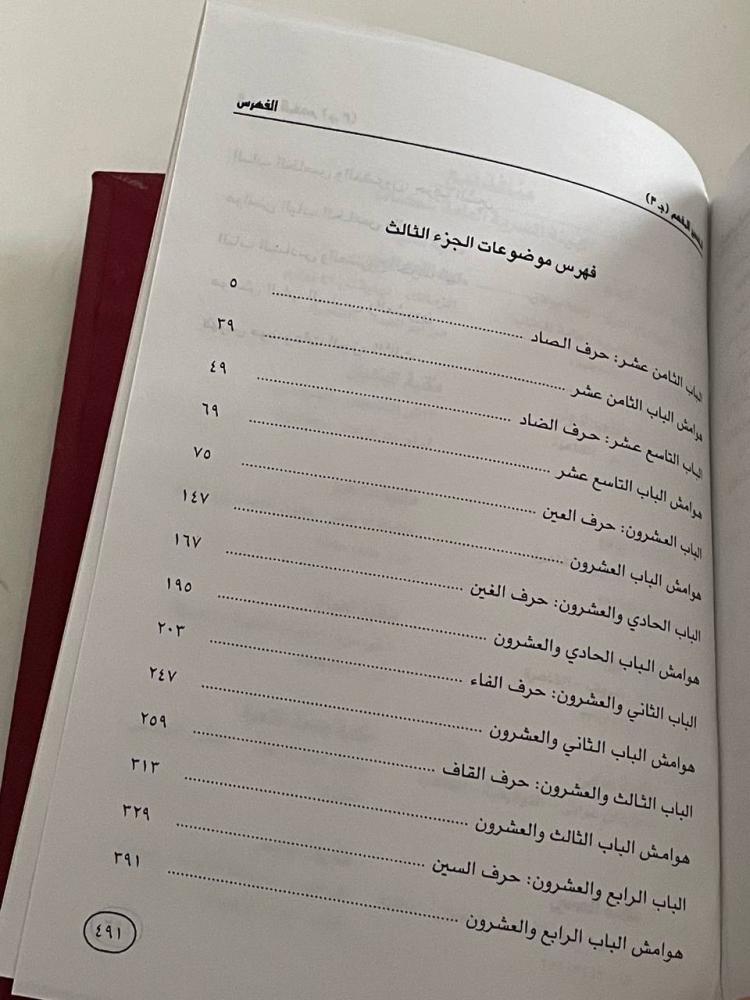 الفهرس
الفهم (جـ ٣)
فهرس موضوعات الجزء الثالث
الباب الثامن عشر: حرف الصاد ........ ٥
هوامش الباب الثامن عشر ........ ٣٩
الباب التاسع عشر: حرف الضاد ........ ٤٩
هوامش الباب التاسع عشر ........ ٦٩
الباب العشرون: حرف العين ........ ٧٥
هوامش الباب العشرون ........ ١٤٧
الباب الحادي والعشرون: حرف الغين ........ ١٦٧
هوامش الباب الحادي والعشرون ........ ١٩٥
الباب الثاني والعشرون: حرف الفاء ........ ٢٠٣
هوامش الباب الثاني والعشرون ........ ٢٤٧
الباب الثالث والعشرون: حرف القاف ........ ٢٥٩
هوامش الباب الثالث والعشرون ........ ٣١٣
الباب الرابع والعشرون: حرف السين ........ ٣٢٩
هوامش الباب الرابع والعشرون ........ ٣٩١
٤٩١